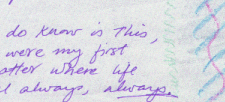 do know is this,
were my first
atter where life
l always, always.